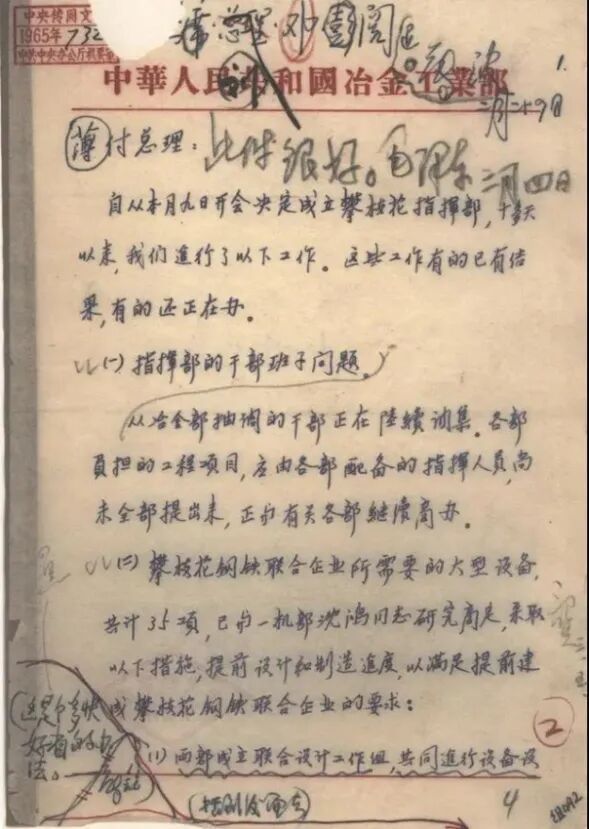 中央传阅文
1965年732
席 总理 邓 彭 阅
1.
中華人民共和國冶金工業部
二月二十9日
薄付总理：
此件很好。毛泽东 三月四日
自从本月九日开会决定成立攀枝花指挥部，十多天
以来，我们進行了以下工作。这些工作有的已有结
果，有的还正在办。
(一)指挥部的干部班子问题。
从冶金部抽调的干部正在陸續调集。各部
負担的工程项目，应由各部配备的指挥人员，尚
未全部提出来，正与有关各部継續商办。
(二)攀枝花钢铁联合企业所需要的大型设备，
共计35项，已与一机部沈鸿同志研究商定，采取
以下措施，提前设计和制造進度，以满足提前建
成攀枝花钢铁联合企业的要求：
(这是个多快
好省的办
法。
(1)两部成立联合设计工作组，共同進行设备设
2
4